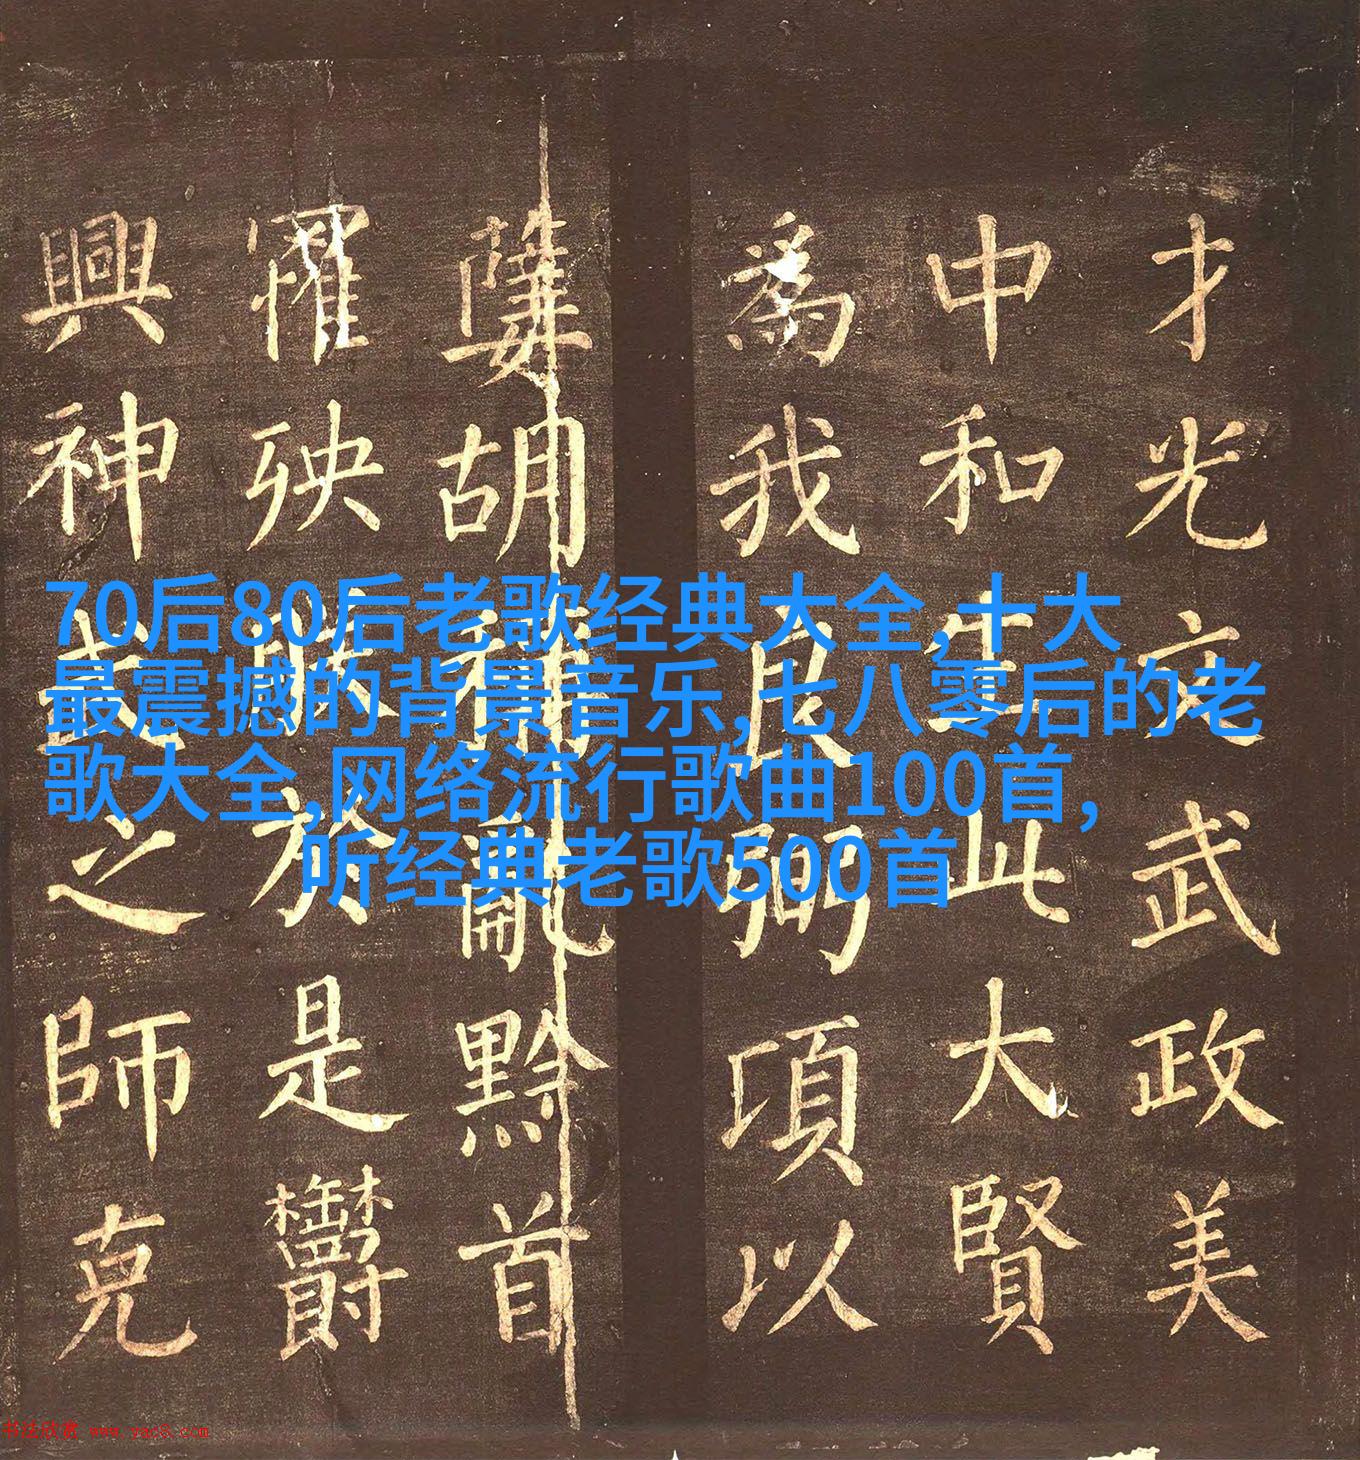 70后80后老歌经典大全,十大
最震撼的背景音乐,七八零后的老
歌大全,网络流行歌曲100首,
听经典老歌500首
才光文武政美
中和生此大賢
為我良弼項以
孽胡亂黔首
罹殃朕於是欝
興神之師克
书法欣赏 www.yac8.com